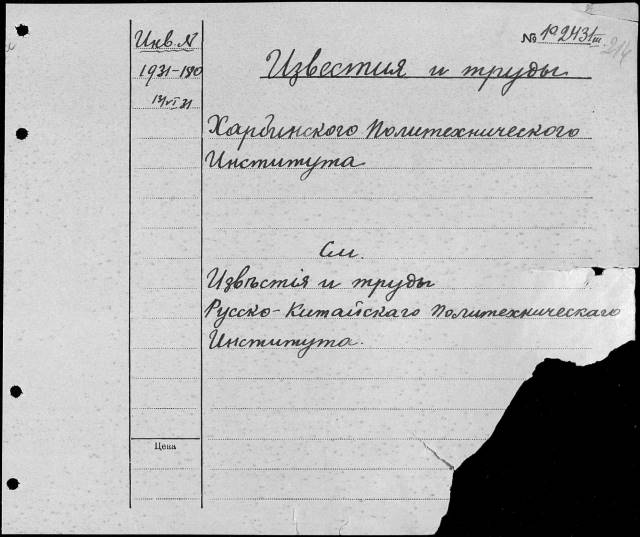 Инв. №
1931-180
13/VI 31
№ 102431 III.
214
Известия и труды
Харбинского Политехнического
Института
См.
Извѣстія и труды
Русско-Китайскаго Политехническаго
Института.
Цена